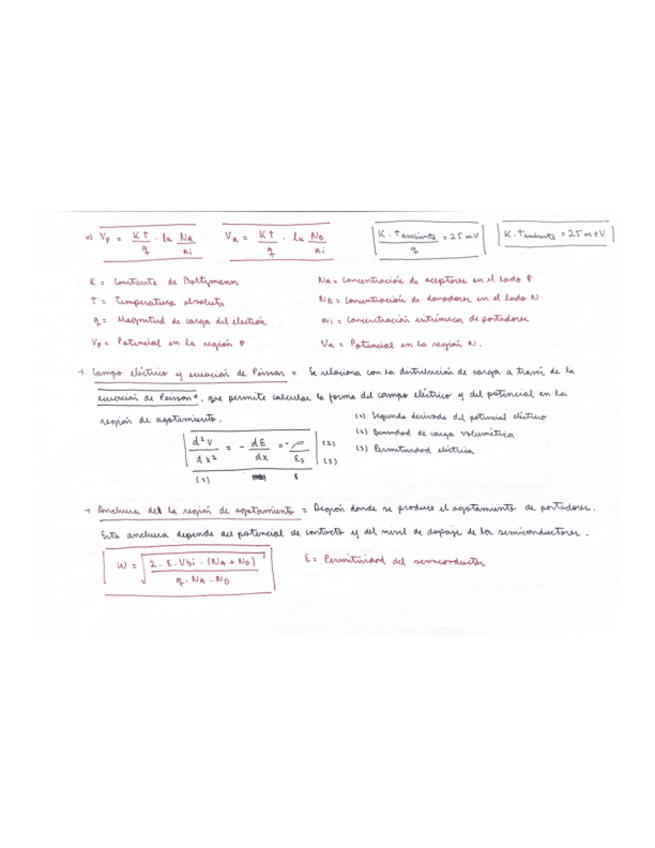 ⇒ Vp = KT/q · ln NA/ni   Vn = KT/q · ln ND/ni   K · Tambiente/q = 25 mV   K · Tambiente = 25 meV
K = Constante de Boltzmann   NA = Concentración de aceptores en el lado P
T = Temperatura absoluta   ND = Concentración de donadores en el lado N
q = Magnitud de carga del electrón   ni = Concentración intrínseca de portadores
Vp = Potencial en la región P   Vn = Potencial en la región N.
→ Campo eléctrico y ecuación de Poisson = Se relaciona con la distribución de carga a través de la
ecuación de Poisson", que permite calcular la forma del campo eléctrico y del potencial en la
región de agotamiento.   (1) Segunda derivada del potencial eléctrico
d²V/dx² = - dE/dx = - ρ/Es   (2)   (2) Densidad de carga volumétrica
(3)   (3) Permitividad eléctrica
(1)
→ Anchura del la región de agotamiento = Región donde se produce el agotamiento de portadores.
Esta anchura depende del potencial de contacto y del nivel de dopaje de los semiconductores.
W = √(2 · E · Vbi · (NA + ND) / q · NA · ND)   E = Permitividad del semiconductor